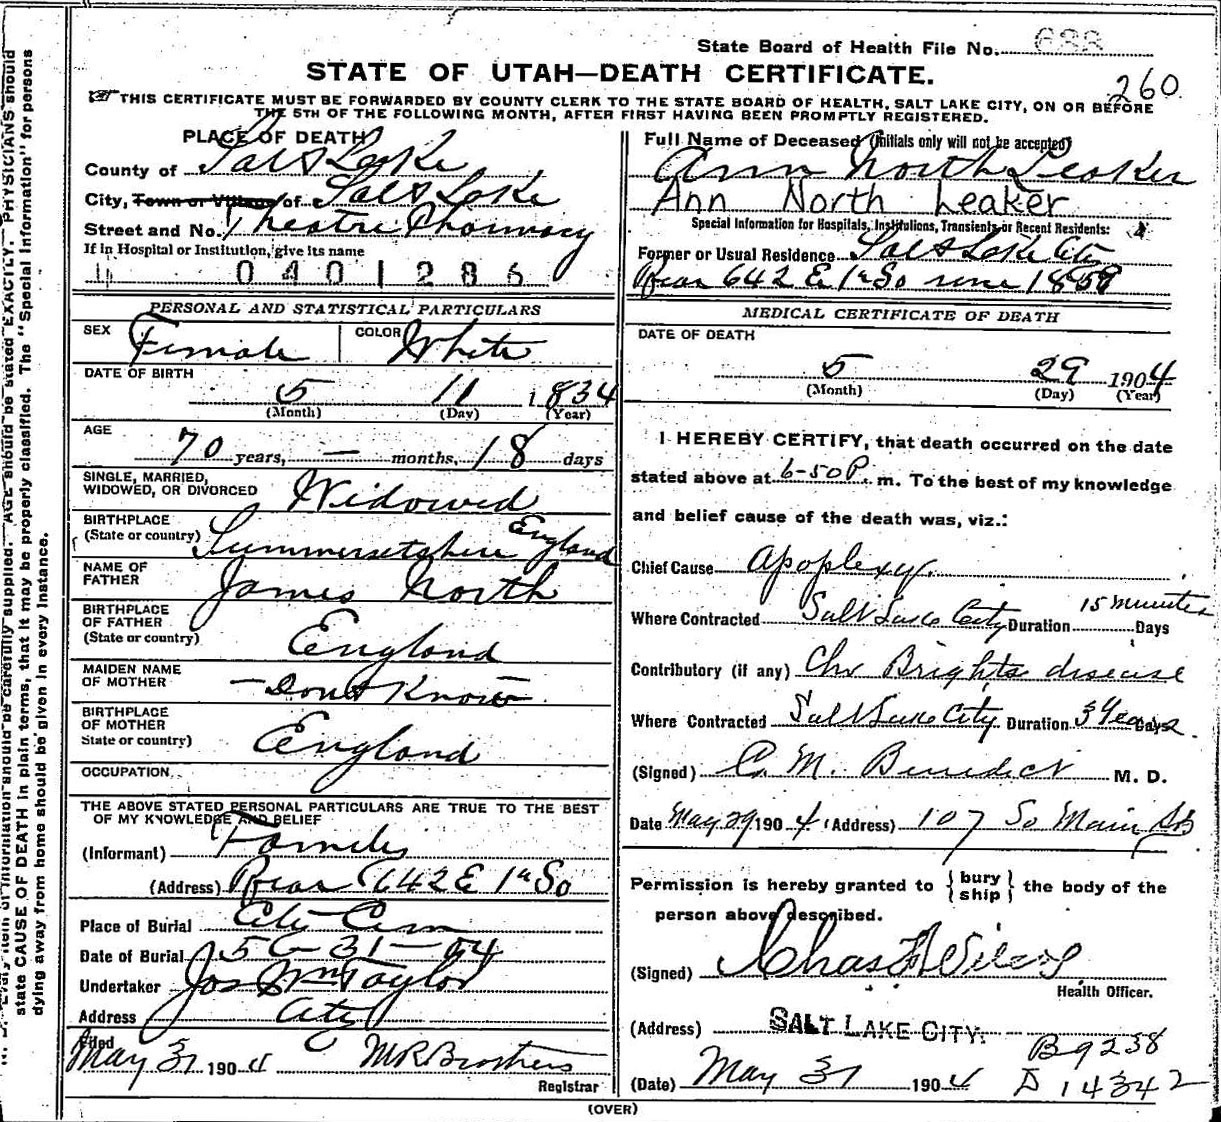 State Board of Health File No. 688
STATE OF UTAH—DEATH CERTIFICATE.
260
THIS CERTIFICATE MUST BE FORWARDED BY COUNTY CLERK TO THE STATE BOARD OF HEALTH, SALT LAKE CITY, ON OR BEFORE
THE 5TH OF THE FOLLOWING MONTH, AFTER FIRST HAVING BEEN PROMPTLY REGISTERED.
PLACE OF DEATH
County of Salt Lake
City, Town or Village of Salt Lake
Street and No. Theatre Pharmacy
If in Hospital or Institution, give its name
0401285
PERSONAL AND STATISTICAL PARTICULARS
SEX Female COLOR White
DATE OF BIRTH
5 11 1834
(Month) (Day) (Year)
AGE
70 years, — months, 18 days
SINGLE, MARRIED,
WIDOWED, OR DIVORCED Widowed
BIRTHPLACE
(State or country) Summersetshire England
NAME OF
FATHER James North
BIRTHPLACE
OF FATHER
(State or country) England
MAIDEN NAME
OF MOTHER — Dont Know
BIRTHPLACE
OF MOTHER
State or country) England
OCCUPATION
THE ABOVE STATED PERSONAL PARTICULARS ARE TRUE TO THE BEST
OF MY KNOWLEDGE AND BELIEF
(Informant) Family
(Address) Rear 642 E 1st So
Place of Burial City Cem
Date of Burial 5-31-04
Undertaker Jos Wm Taylor
Address City
Filed
May 31 1904
Registrar
Full Name of Deceased (Initials only will not be accepted)
Ann North Leaker
Ann North Leaker
Special Information for Hospitals, Institutions, Transients or Recent Residents:
Former or Usual Residence Salt Lake City
Rear 642 E 1st So since 1859
MEDICAL CERTIFICATE OF DEATH
DATE OF DEATH
5 29 1904
(Month) (Day) (Year)
I HEREBY CERTIFY, that death occurred on the date
stated above at 6-50 P. m. To the best of my knowledge
and belief cause of the death was, viz.:
Chief Cause Apoplexy.
Where Contracted Salt Lake City Duration 15 minutes Days
Contributory (if any) Chr Brights disease
Where Contracted Salt Lake City Duration 3 Years Days
(Signed) C. M. Benedict M. D.
Date May 29 1904 (Address) 107 So Main St
Permission is hereby granted to { bury ship } the body of the
person above described.
(Signed) Chas
Health Officer.
(Address) SALT LAKE CITY.
B 9238
(Date) May 31 1904
D 14342
(OVER)
PHYSICIANS should
state CAUSE OF DEATH in plain terms, that it may be properly classified. The "Special Information" for persons
dying away from home should be given in every instance.
information should be carefully supplied. AGE should be stated EXACTLY.